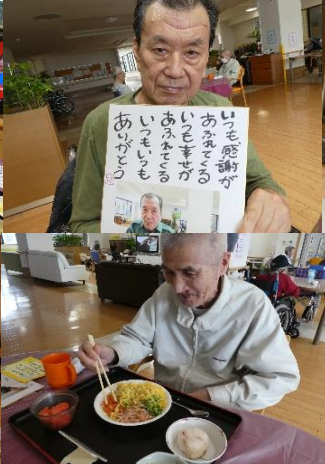 いつも感謝が
あふれてくる
いつも幸せが
あふれてくる
いつもいつも
ありがとう